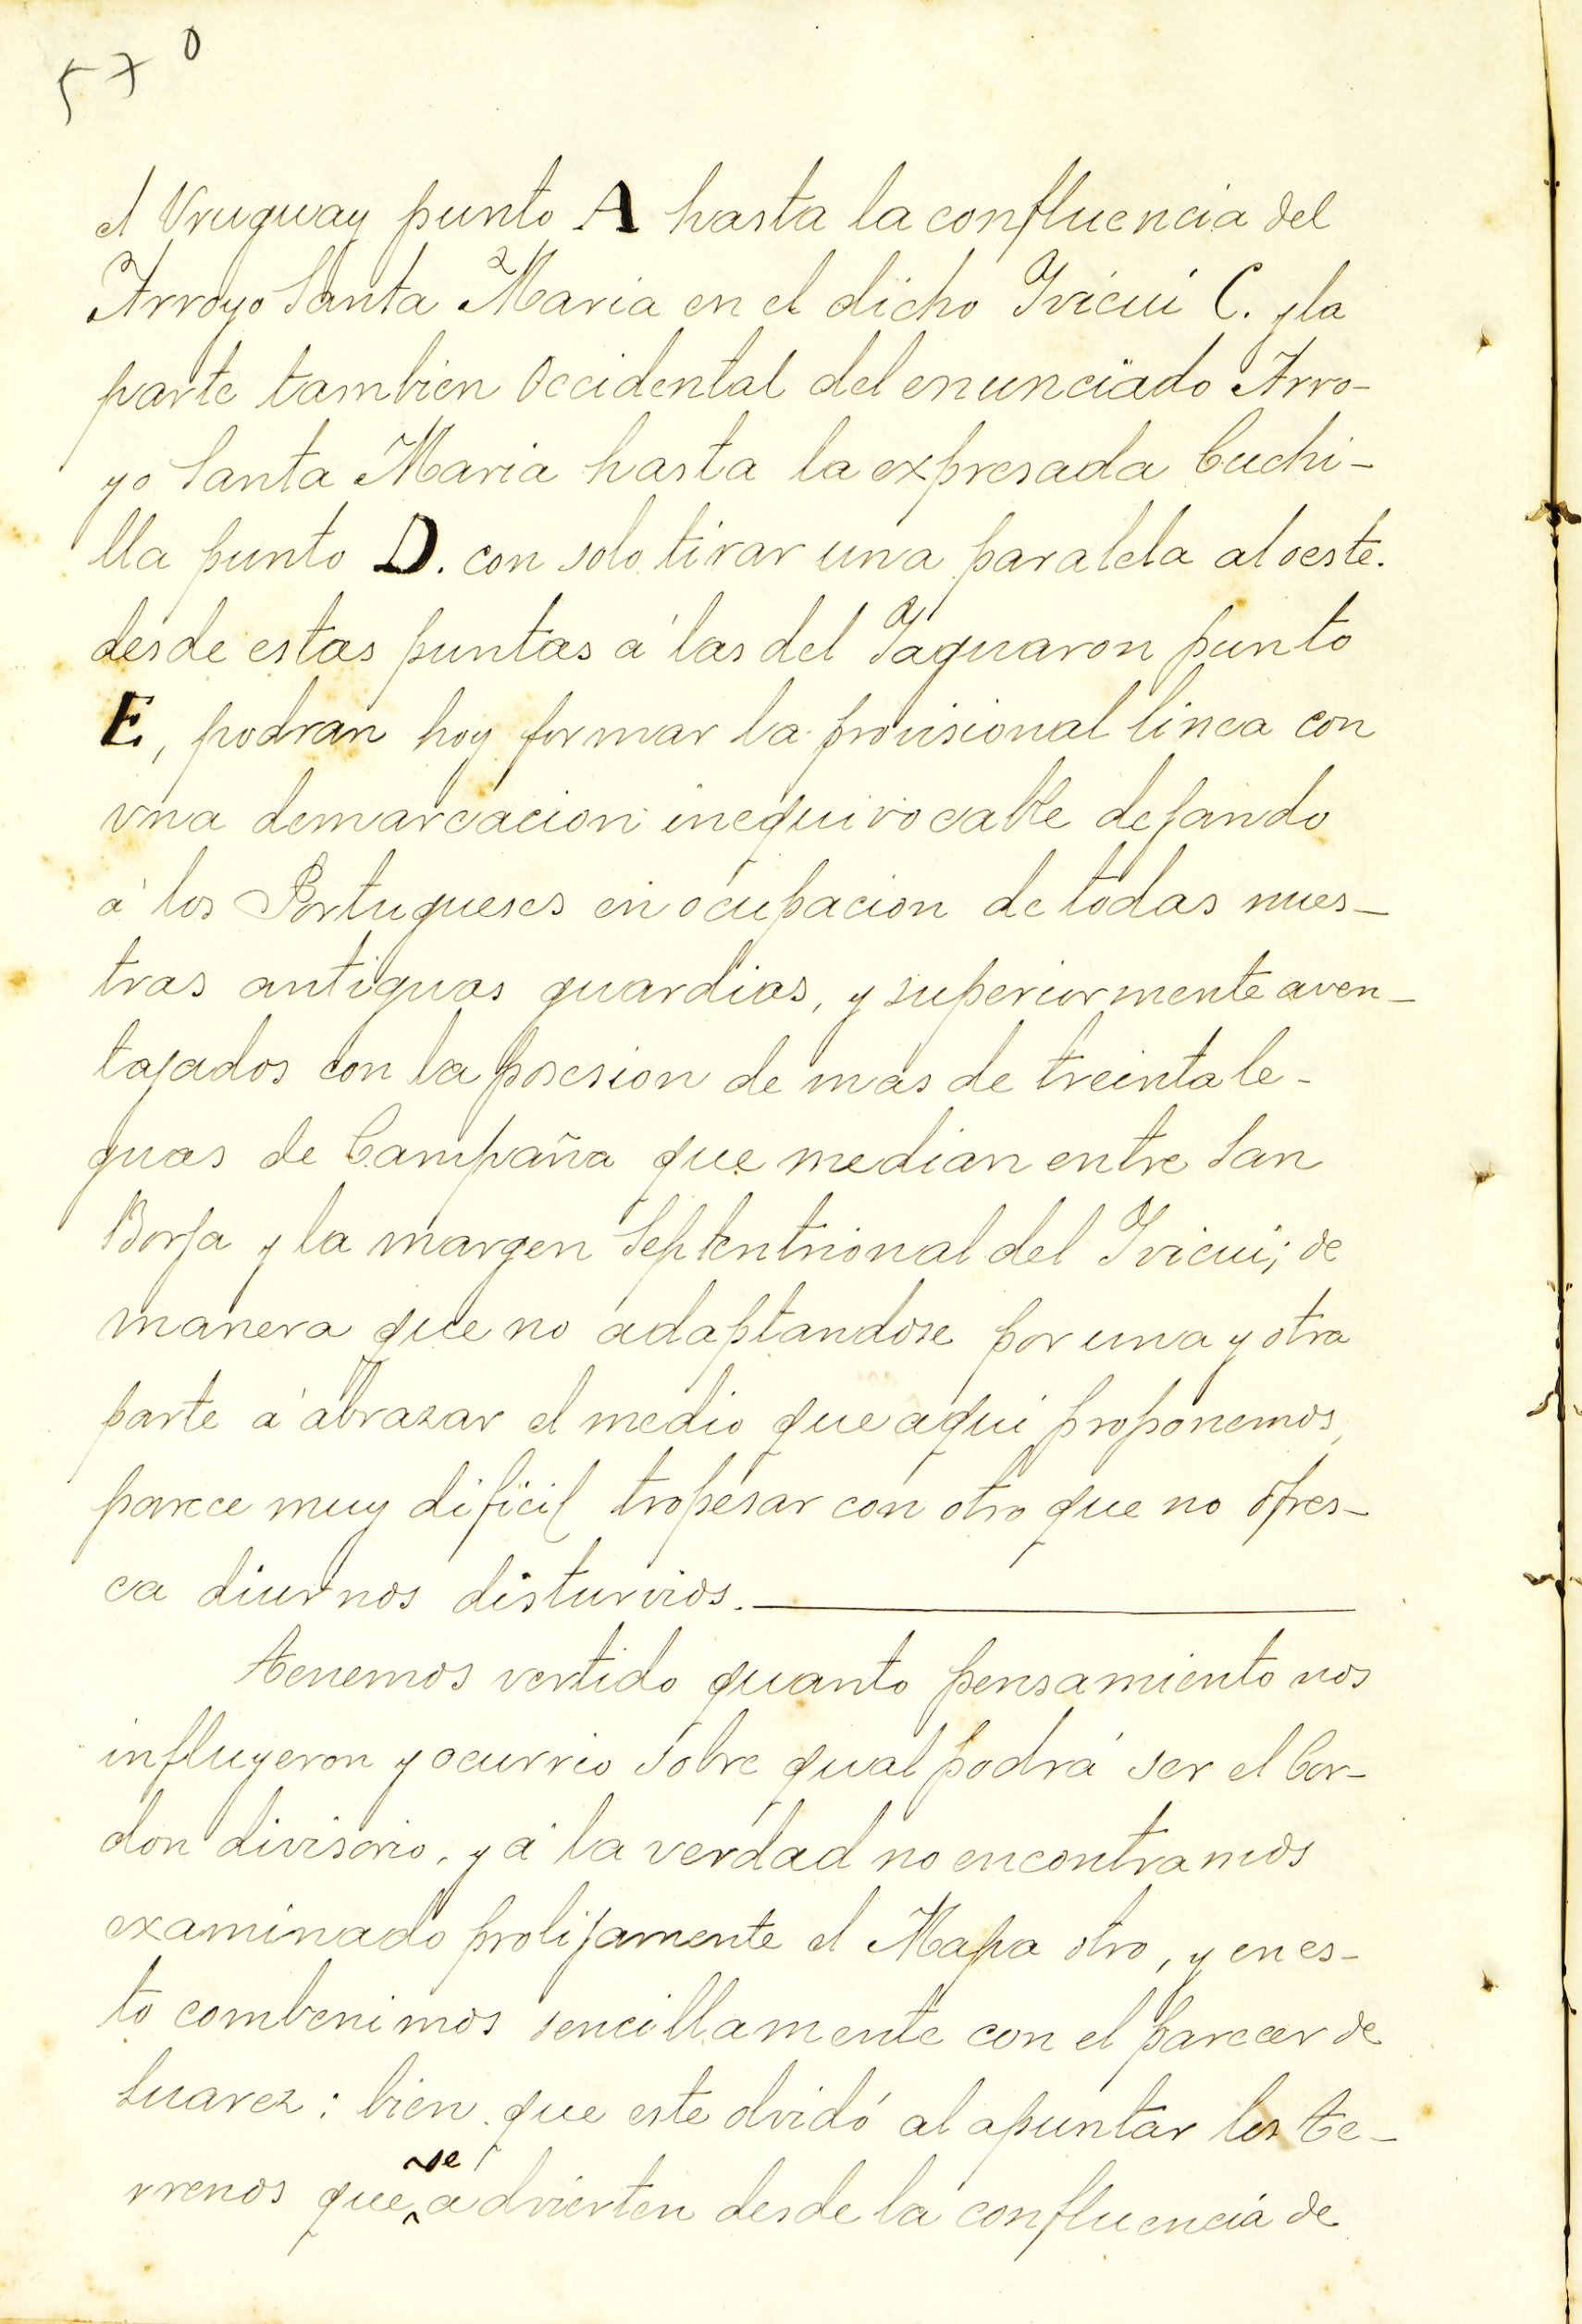 570
el Vruguay punto A hasta la confluencia del
Arroyo Santa Maria en el dicho Ivicui C. y la
parte tambien Occidental del enunciado Arro-
yo Santa Maria hasta la expresada Cuchi-
lla punto D. con solo tirar una paralela al oeste.
desde estas puntas á las del Yaguaron punto
E, podran hoy formar la provisional linea con
vna demarcacion inequivocable dejando
á los Portugueses en ocupacion de todas nues-
tras antiguas guardias, y superiormente aven-
tajados con la posesion de mas de treinta le-
guas de Campaña que median entre San
Borja y la margen Septentrional del Ivicui; de
manera que no adaptandose por una y otra
parte á abrazar el medio que aqui proponemos,
parece muy dificil tropesar con otro que no ofres-
ca diurnos disturvios.
tenemos vertido quanto pensamiento nos
influyeron y ocurrio sobre qual podrá ser el Cor-
don divisorio, y á la verdad no encontramos
examinado prolijamente el Mapa otro, y en es-
to combenimos sencillamente con el parecer de
Suarez: bien que este olvidó al apuntar los te-
rrenos que se advierten desde la confluencia de